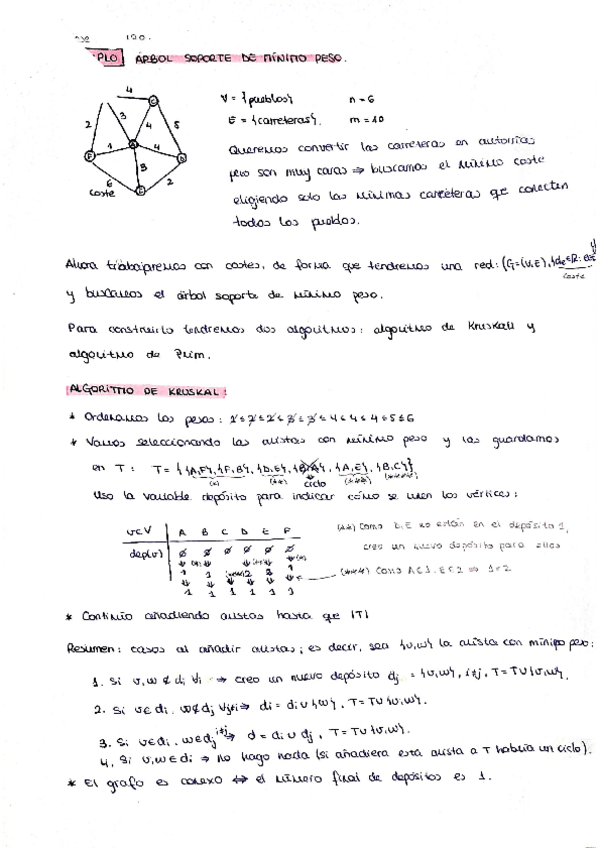 PLO ÁRBOL SOPORTE DE MÍNIMO PESO.
4
V = {pueblos} n = 6
E = {carreteras}. m = 10
2 3 4 5
1 A 4
F D
3
6 2
coste E
Queremos convertir las carreteras en autovías
pero son muy caras ⇒ buscamos el mínimo coste
eligiendo solo las mínimas carreteras que conecten
todos los pueblos.
Ahora trabajaremos con costes, de forma que tendremos una red: (G=(V,E), {de∈R: e∈E}) y
coste
y buscamos el árbol soporte de mínimo peso.
Para construirlo tendremos dos algoritmos: algoritmo de Kruskall y
algoritmo de Prim.
ALGORITMO DE KRUSKAL:
* Ordenamos los pesos: 1≤2≤2≤3≤3≤4≤4≤4≤5≤6
* Vamos seleccionando las aristas con mínimo peso y las guardamos
en T: T = {{A,F},{F,B},{D,E},{B,A},{A,E},{B,C}}
(*) (**) ciclo (***) (****)
Uso la variable depósito para indicar cómo se unen los vértices:
v∈V A B C D E F
dep(v) ∅ ∅ ∅ ∅ ∅ ∅
1 1 2 2 1
1 1 1 1 1 1
(**) Como D,E no están en el depósito 1,
creo un nuevo depósito para ellos
(***) Como A∈1, E∈2 ⇒ 1=2
* Continúo añadiendo aristas hasta que |T|
Resumen: casos al añadir aristas; es decir, sea {v,w} la arista con mínimo peso:
1. Si v,w ∉ di ∀i ⇒ creo un nuevo depósito dj = {v,w}, i≠j, T=T∪{v,w}.
2. Si v∈di, w∉dj ∀j≠i ⇒ di = di∪{w}, T=T∪{v,w}.
3. Si v∈di, w∈dj i≠j ⇒ d = di∪dj, T=T∪{v,w}.
4. Si v,w∈di ⇒ no hago nada (si añadiera esta arista a T habría un ciclo).
* El grafo es conexo ⇔ el número final de depósitos es 1.